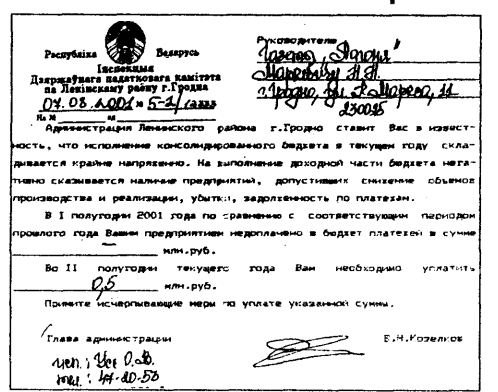 Рэспубліка Беларусь
Інспекцыя
Дзяржаўнага падатковага камітэта
па Ленінскаму раёну г.Гродна
07.08.2001 № 5-2/
На №
Руководителю
Газета „Пагоня"
Маркевичу Н.Н.
г.Гродно, ул. К.Маркса, 11
230025
Администрация Ленинского района г.Гродно ставит Вас в извест-
ность, что исполнение консолидированного бюджета в текущем году скла-
дывается крайне напряженно. На выполнение доходной части бюджета нега-
тивно сказывается наличие предприятий, допустивших снижение объемов
производства и реализации, убытки, задолженность по платежам.
В I полугодии 2001 года по сравнению с соответствующим периодом
прошлого года Вашим предприятием недоплачено в бюджет платежей в сумме
млн.руб.
Во II полугодии текущего года Вам необходимо уплатить
0,5 млн.руб.
Примите исчерпывающие меры по уплате указанной суммы.
Глава администрации Е.Н.Козелков
исп.: Ус О.В.
тел.: 47-20-53